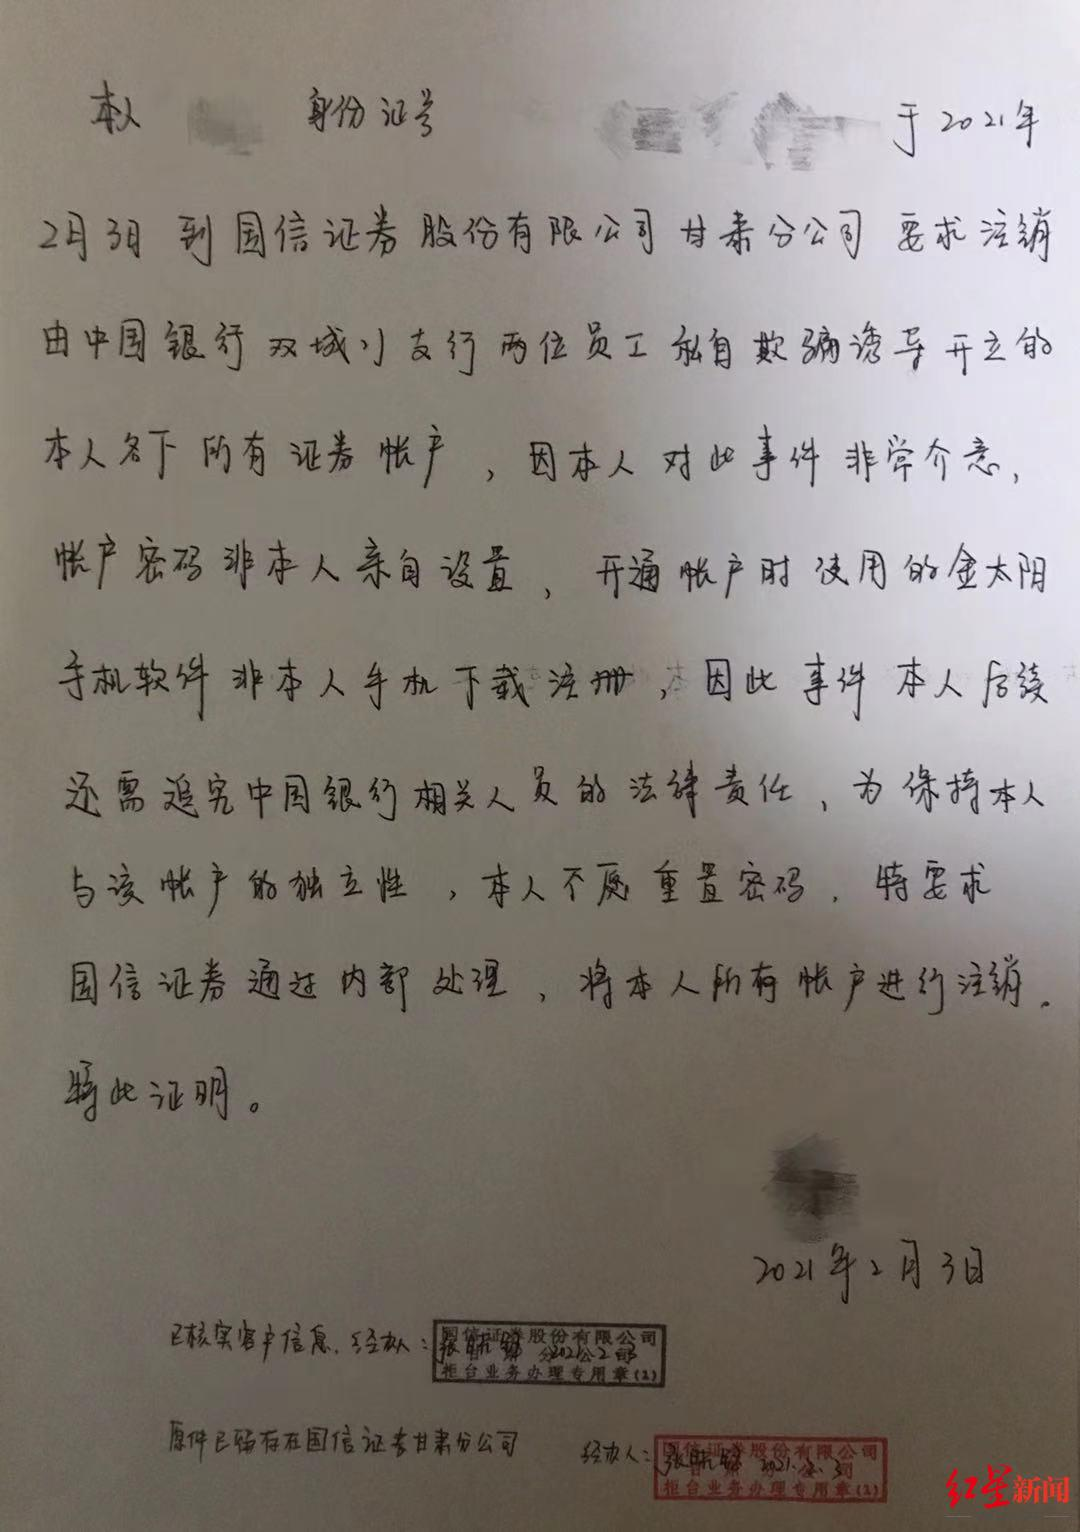 本人 身份证号 于2021年
2月3日 到国信证券股份有限公司甘肃分公司 要求注销
由中国银行双城门支行两位员工私自欺骗诱导开立的
本人名下所有证券帐户，因本人对此事件非常介意，
帐户密码非本人亲自设置，开通帐户时使用的金太阳
手机软件非本人手机下载注册，因此事件本人后续
还需追究中国银行相关人员的法律责任，为保持本人
与该帐户的独立性，本人不愿重置密码，特要求
国信证券通过内部处理，将本人所有帐户进行注销。
特此证明。
2021年2月3日
已核实客户信息，经办人：
国信证券股份有限公司
柜台业务办理专用章(2)
原件已留存在国信证券甘肃分公司 经办人：
国信证券股份有限公司
2021.2.3
柜台业务办理专用章(2)
红星新闻